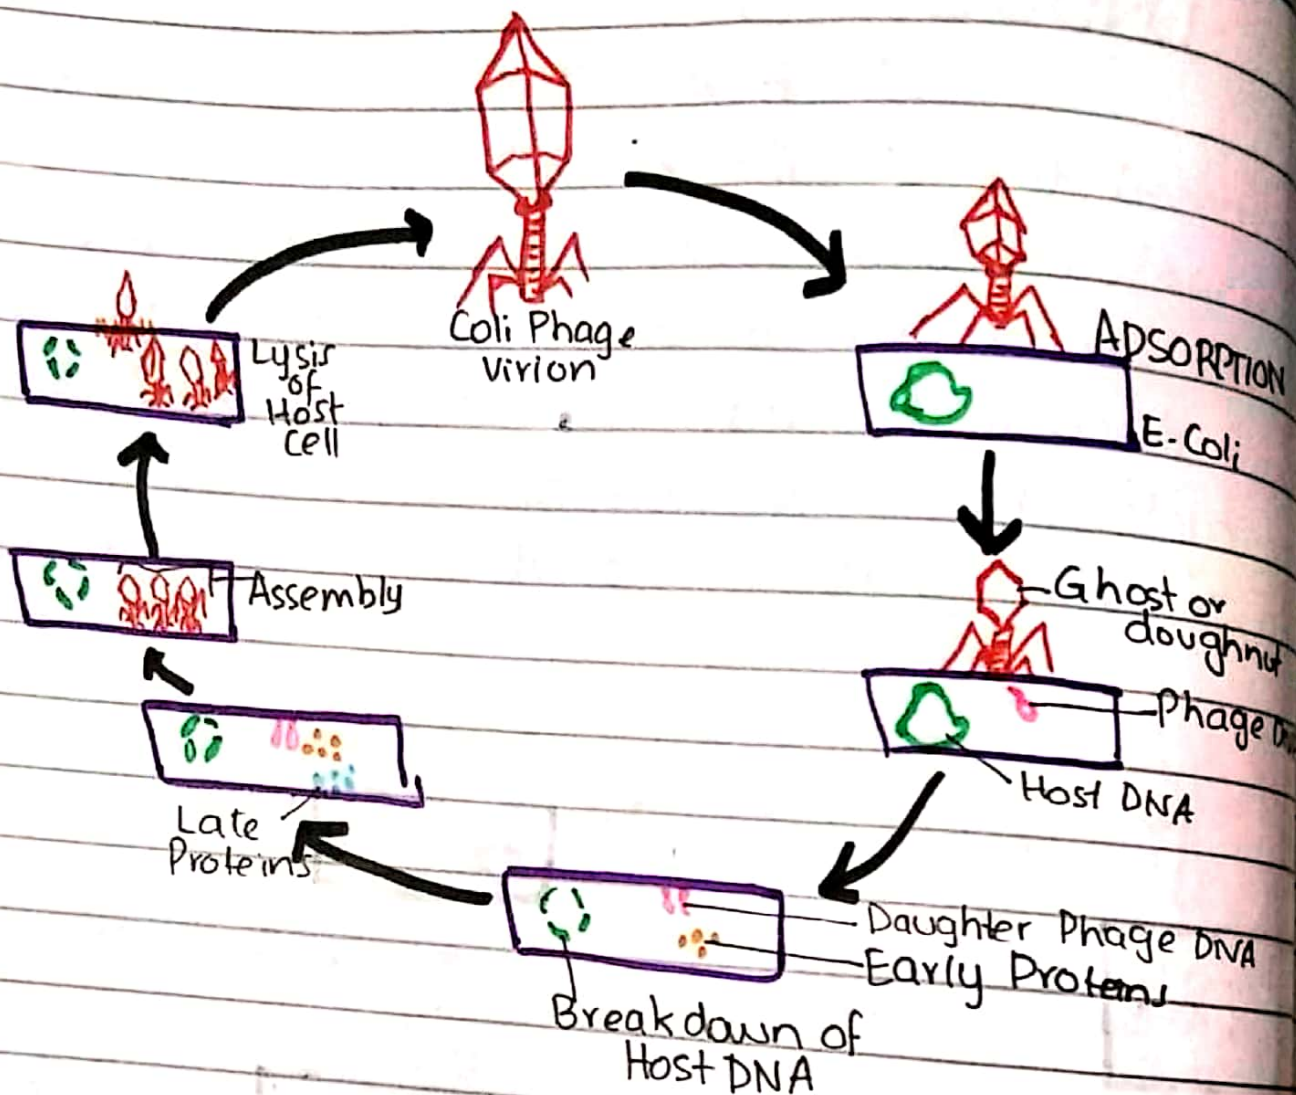 Coli Phage
Virion
ADSORPTION
E-Coli
Ghost or
doughnut
Phage
Host DNA
Daughter Phage DNA
Early Proteins
Breakdown of
Host DNA
Late
Proteins
Assembly
Lysis
of
Host
Cell